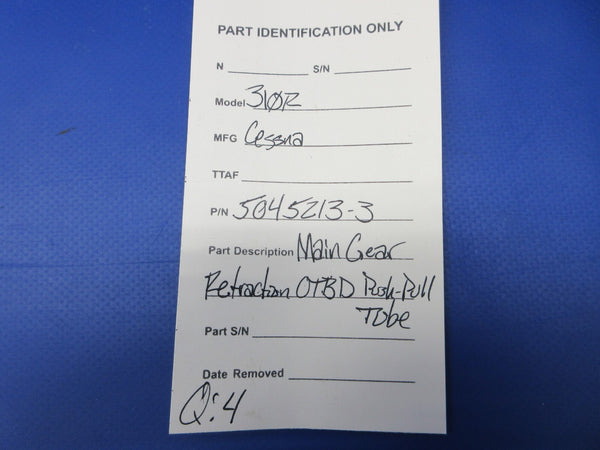 PART IDENTIFICATION ONLY
N ________ S/N ________
Model 310R
MFG Cessna
TTAF ________
P/N 5045213-3
Part Description Main Gear
Retraction OTBD Push-Pull
Tube
Part S/N ________
Date Removed ________
Q:4